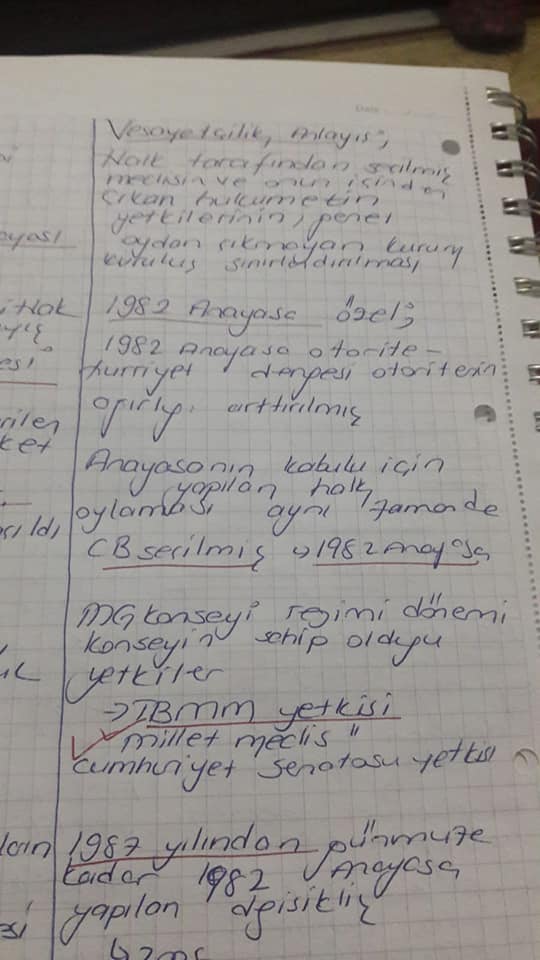 Date
Vesayetçilik Anlayış;
Halk tarafından seçilmiş
meclisin ve onun içinden
çıkan hükumetin
yetkilerinin, genel
oydan çıkmayan kurum
kuruluş sınırladırılması
ayası
1982 Anayasa özel;
1982 Anayasa otorite-
hürriyet dengesi otoritenin
ağırlığı arttırılmış
rilen
ket
Anayasanın kabulu için
yapılan halk
oylaması aynı zamanda
CB seçilmiş → 1982 Anayasa
MG konseyi rejimi dönemi
konseyin sahip olduğu
yetkiler
→ TBMM yetkisi
millet meclis "
Cumhuriyet Senatosu yetkisi
1987 yılından günmüze
kadar 1982 Anayasa
yapılan değisiklik